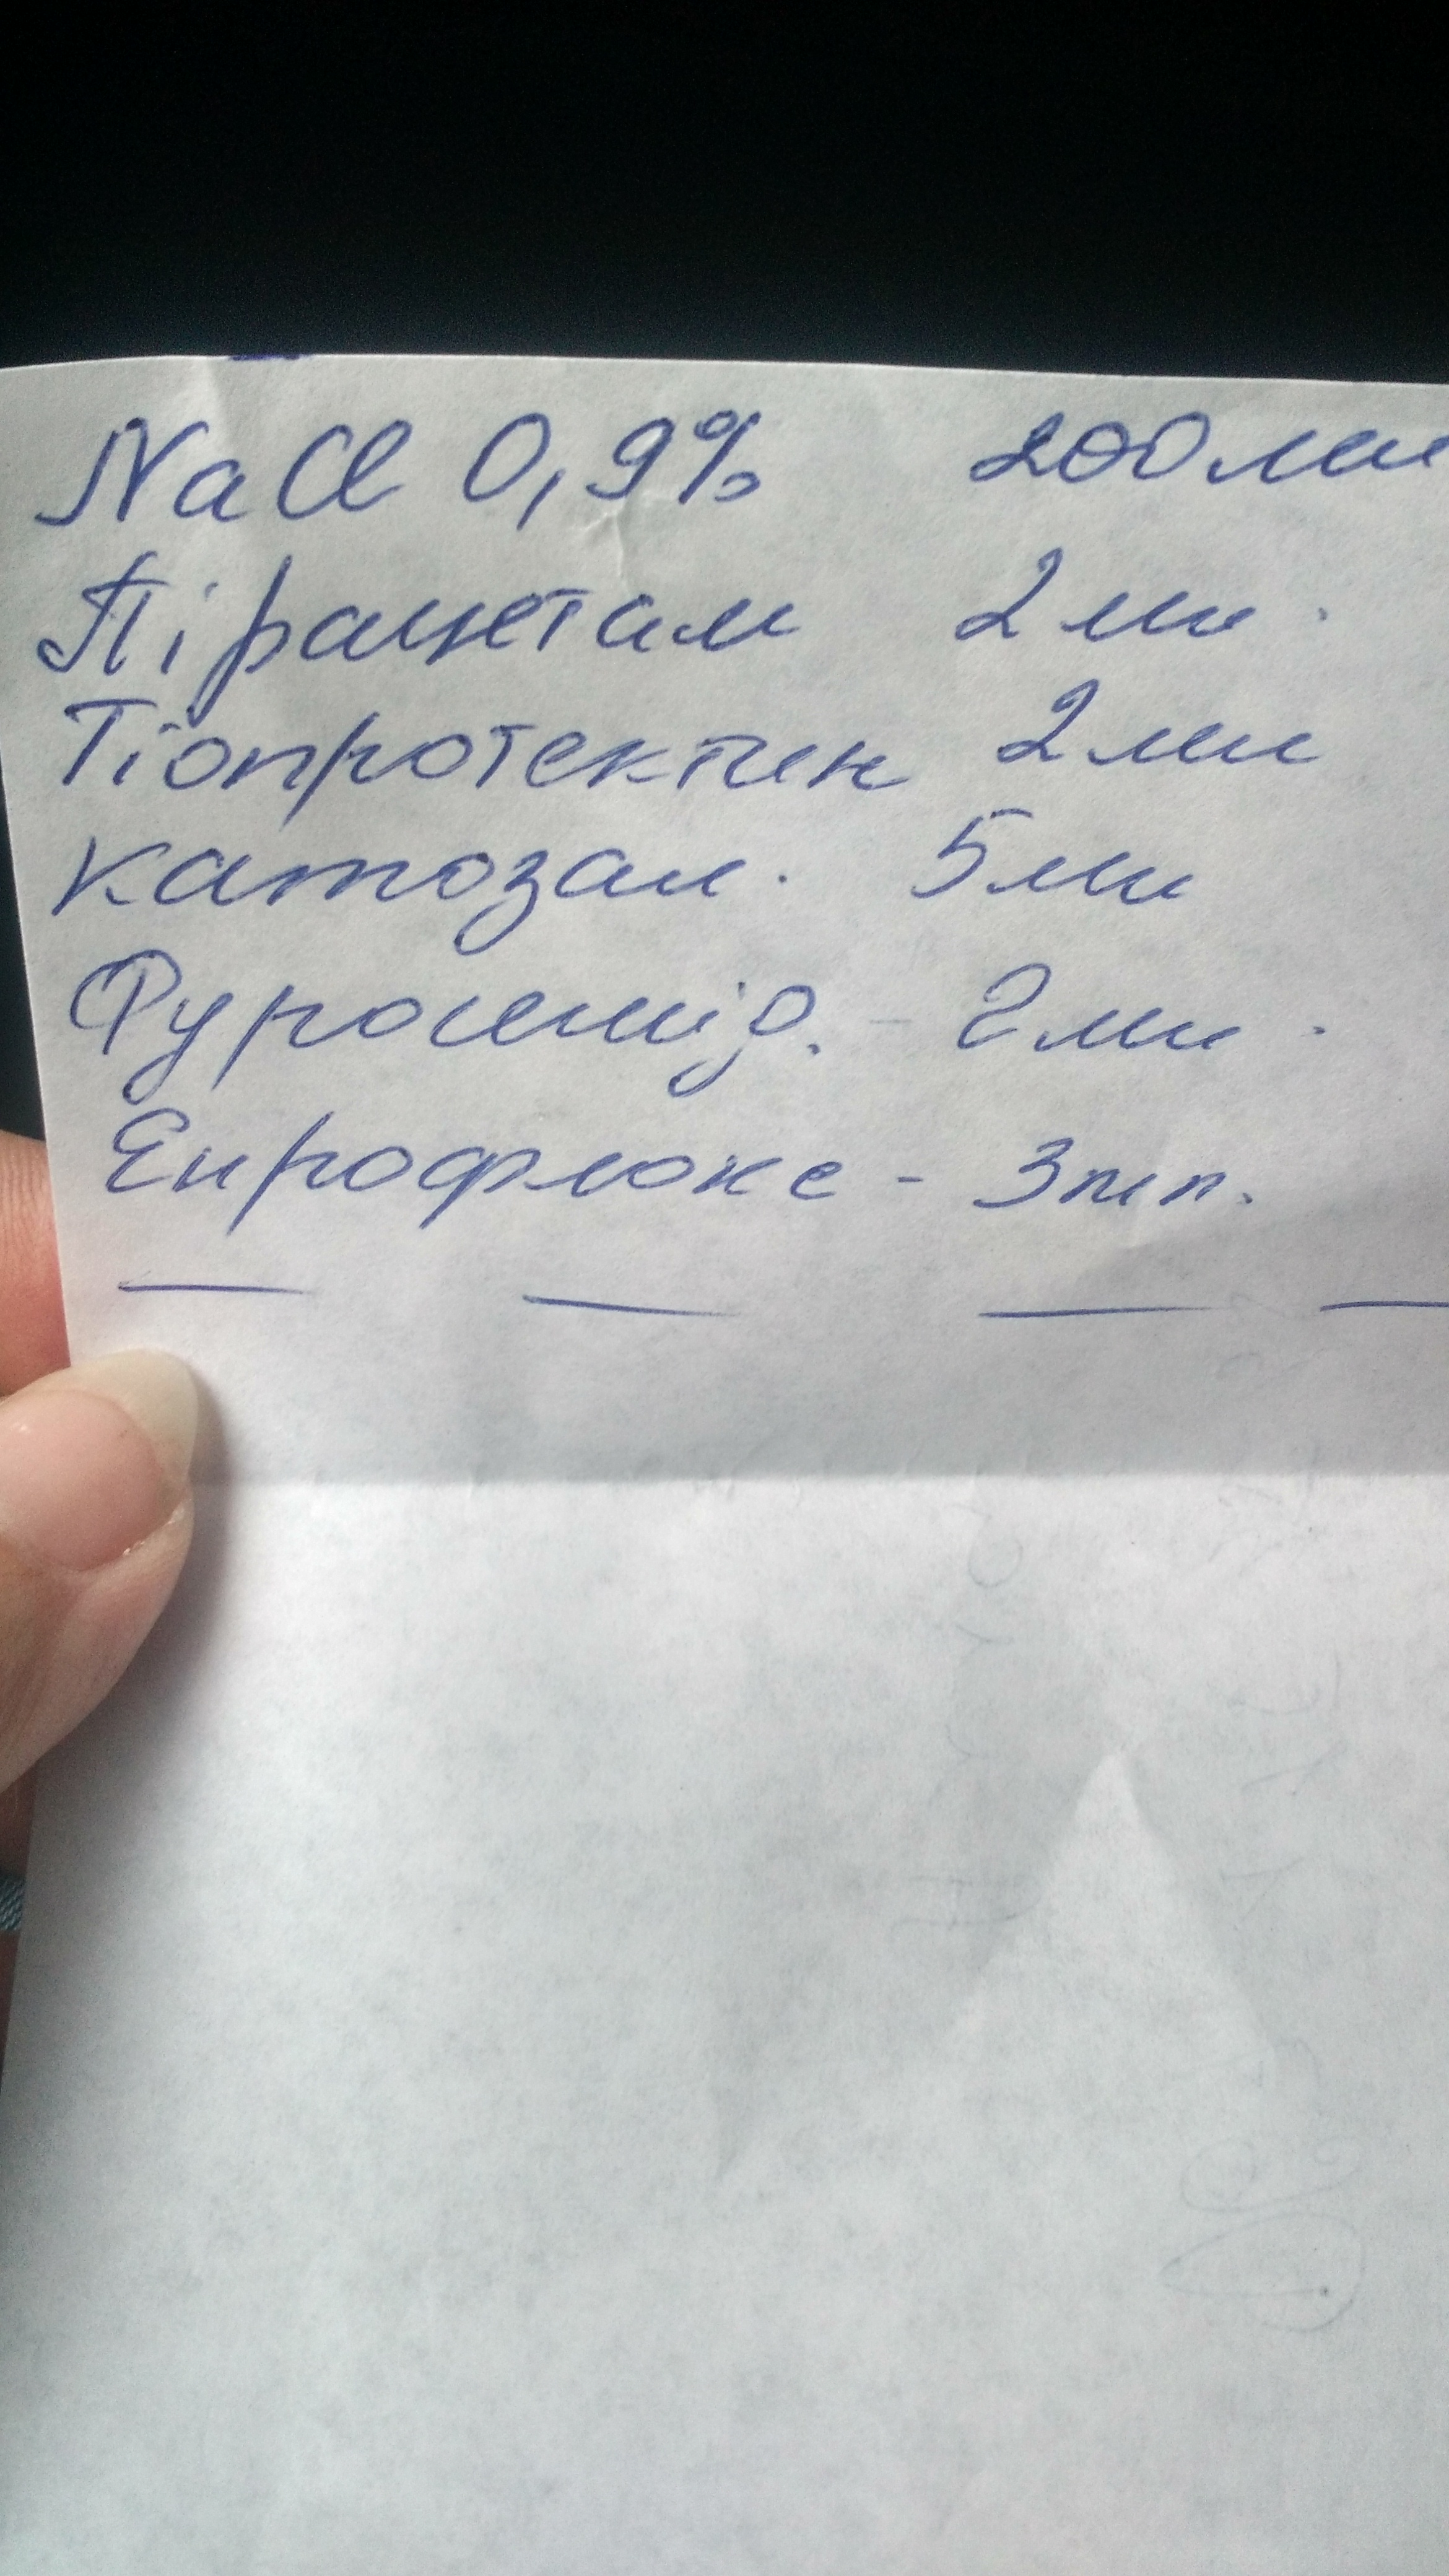 NaCl 0,9% 200 мл
Пірацетам 2 мл.
Тіопротектин 2 мл
Катозал. 5 мл
Фуросемід. - 2 мл.
Енрофлокс - 3 мл.